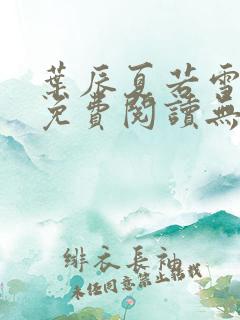 葉辰夏若雪
免費閱讀無
緋衣長袖
未經同意禁止轉載